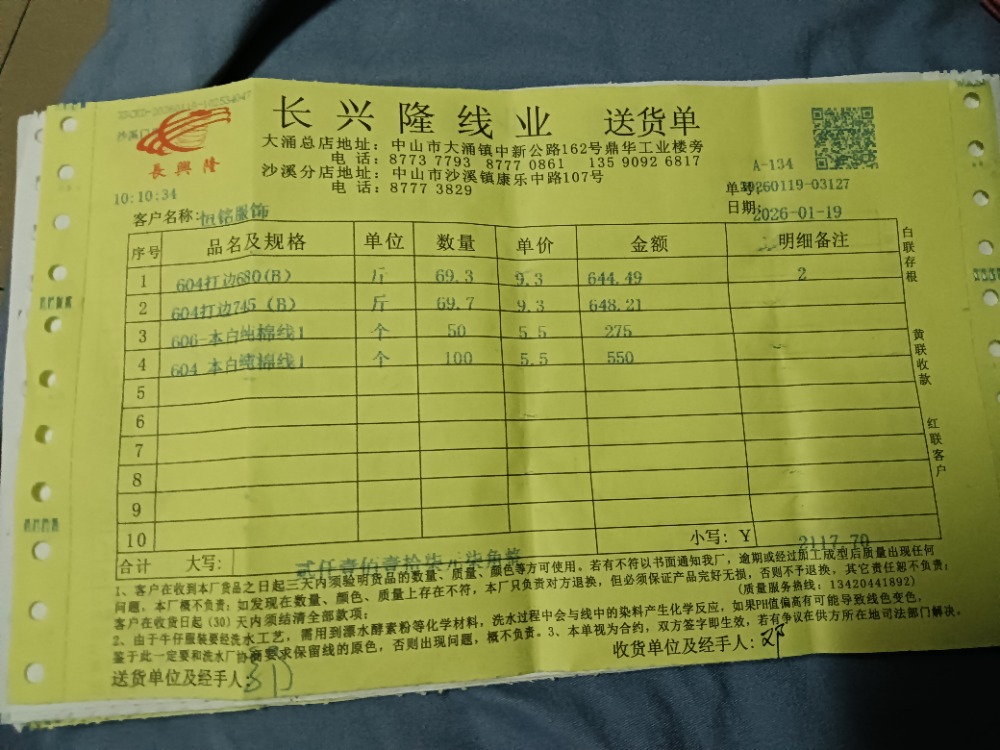 长兴隆线业 送货单
大涌总店地址：中山市大涌镇中新公路162号鼎华工业楼旁
电话：8773 7793 8771 0861 135 9092 6817
沙溪分店地址：中山市沙溪镇康乐中路107号
电话：8777 3829
長興隆
A-134
10:10:34
单号：20260119-03127
客户名称：恒铭服饰
日期：2026-01-19
序号 品名及规格 单位 数量 单价 金额 明细备注
1 604打边680(B) 斤 69.3 9.3 644.49 2
2 604打边745 (B) 斤 69.7 9.3 648.21
3 606-本白纯棉线1 个 50 5.5 275
4 604 本白纯棉线1 个 100 5.5 550
5
6
7
8
9
10
小写：Y 2117.70
合计 大写：贰仟壹佰壹拾柒元柒角整
1、客户在收到本厂货品之日起三天内须验明货品的数量、质量、颜色等方可使用。若有不符以书面通知我厂，逾期或经过加工成型后质量出现任何
问题，本厂概不负责；如发现在数量、颜色、质量上存在不符，本厂只负责对方退换，但必须保证产品完好无损，否则不予退换，其它责任恕不负责；
客户在收货日起(30)天内须结清全部款项； (质量服务热线：13420441892)
2、由于牛仔服装要经洗水工艺，需用到漂水酵素粉等化学材料，洗水过程中会与线中的染料产生化学反应，如果PH值偏高有可能导致线色变色，
鉴于此一定要和洗水厂协商要求保留线的原色，否则出现问题，概不负责。3、本单视为合约，双方签字即生效，若有争议在供方所在地司法部门解决。
送货单位及经手人：
收货单位及经手人：邓
白联存根
黄联收款
红联客户